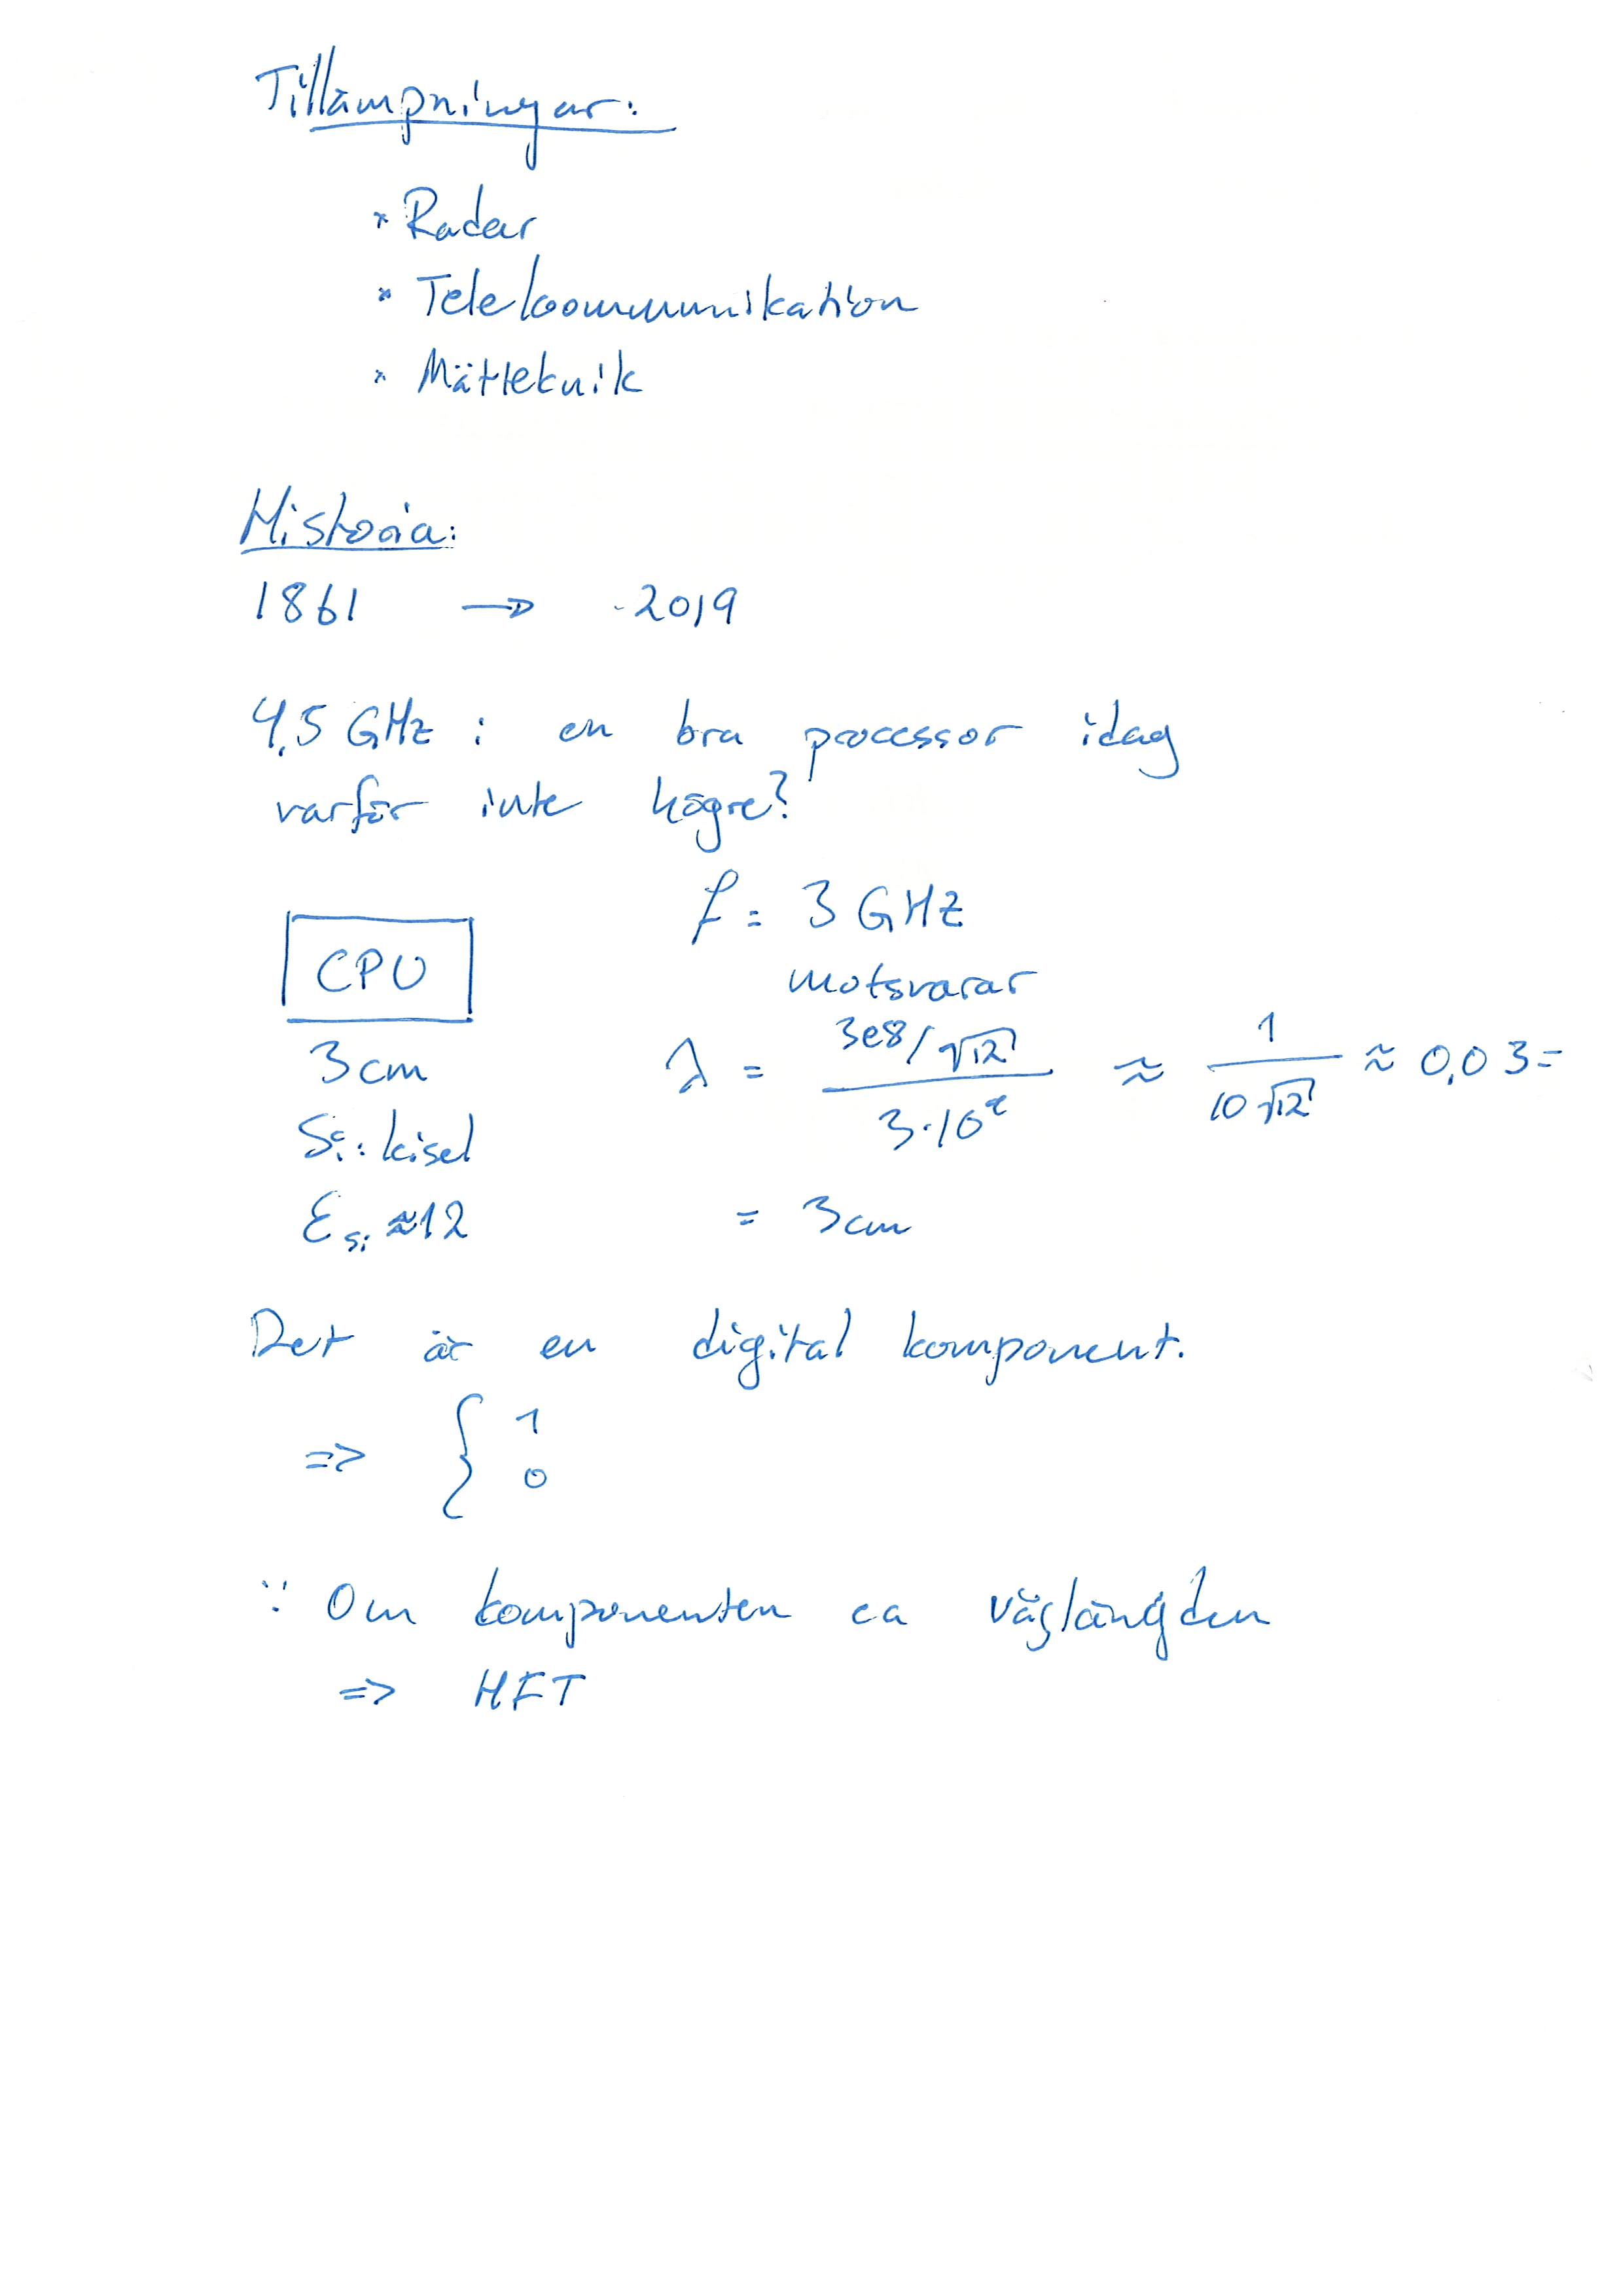 Tillämpningar:
* Radar
* Telekommunikation
* Mätteknik
Historia:
1861 → 2019
4,5 GHz : en bra processor idag
varför inte högre?
f = 3 GHz
CPU
motsvarar
3cm
λ = (3e8/√12)/(3·10⁹) ≈ 1/(10√12) ≈ 0,03=
Si: kisel
εSi ≈12
= 3cm
Det är en digital komponent.
=> { 1
0
∵ Om komponenten ca våglängden
=> HFT